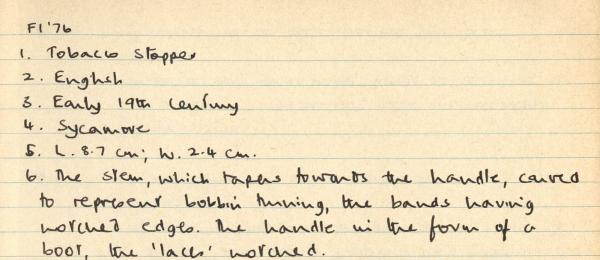 F1'76
1. Tobacco Stopper
2. English
3. Early 19th Century
4. Sycamore
5. L. 8.7 cm; W. 2.4 cm.
6. The stem, which tapers towards the handle, carved
to represent bobbin turning, the bands having
notched edges. The handle in the form of a
boot, the 'laces' notched.